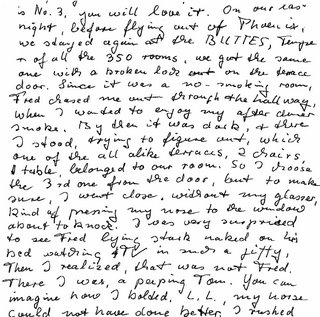 is No. 3, you will love it. On our las-
night, before flying out of Phoenix,
we stayed again at the BUTTES, Tempe
of all the 350 rooms, we got the same
one with a broken lock out on the terrace
door. Since it was a no-smoking room,
Fred chased me out through the hall way,
when I wanted to enjoy my after dinner
smoke. By then it was dark, & there
I stood, trying to figure out, which
one of the all alike terraces, 2 chairs,
1 table, belonged to our room. So I choose
the 3rd one from the door, but to make
sure, I went close, without my glasses,
kind of pressing my nose to the window
about to knock. I was very surprised
to see Fred lying stark naked on his
bed watching TV in such a jiffy,
Then I realized, that was not Fred.
There I was, a peeping Tom. You can
imagine how I bolded, L.L., my horse
could not have done better. I rushed